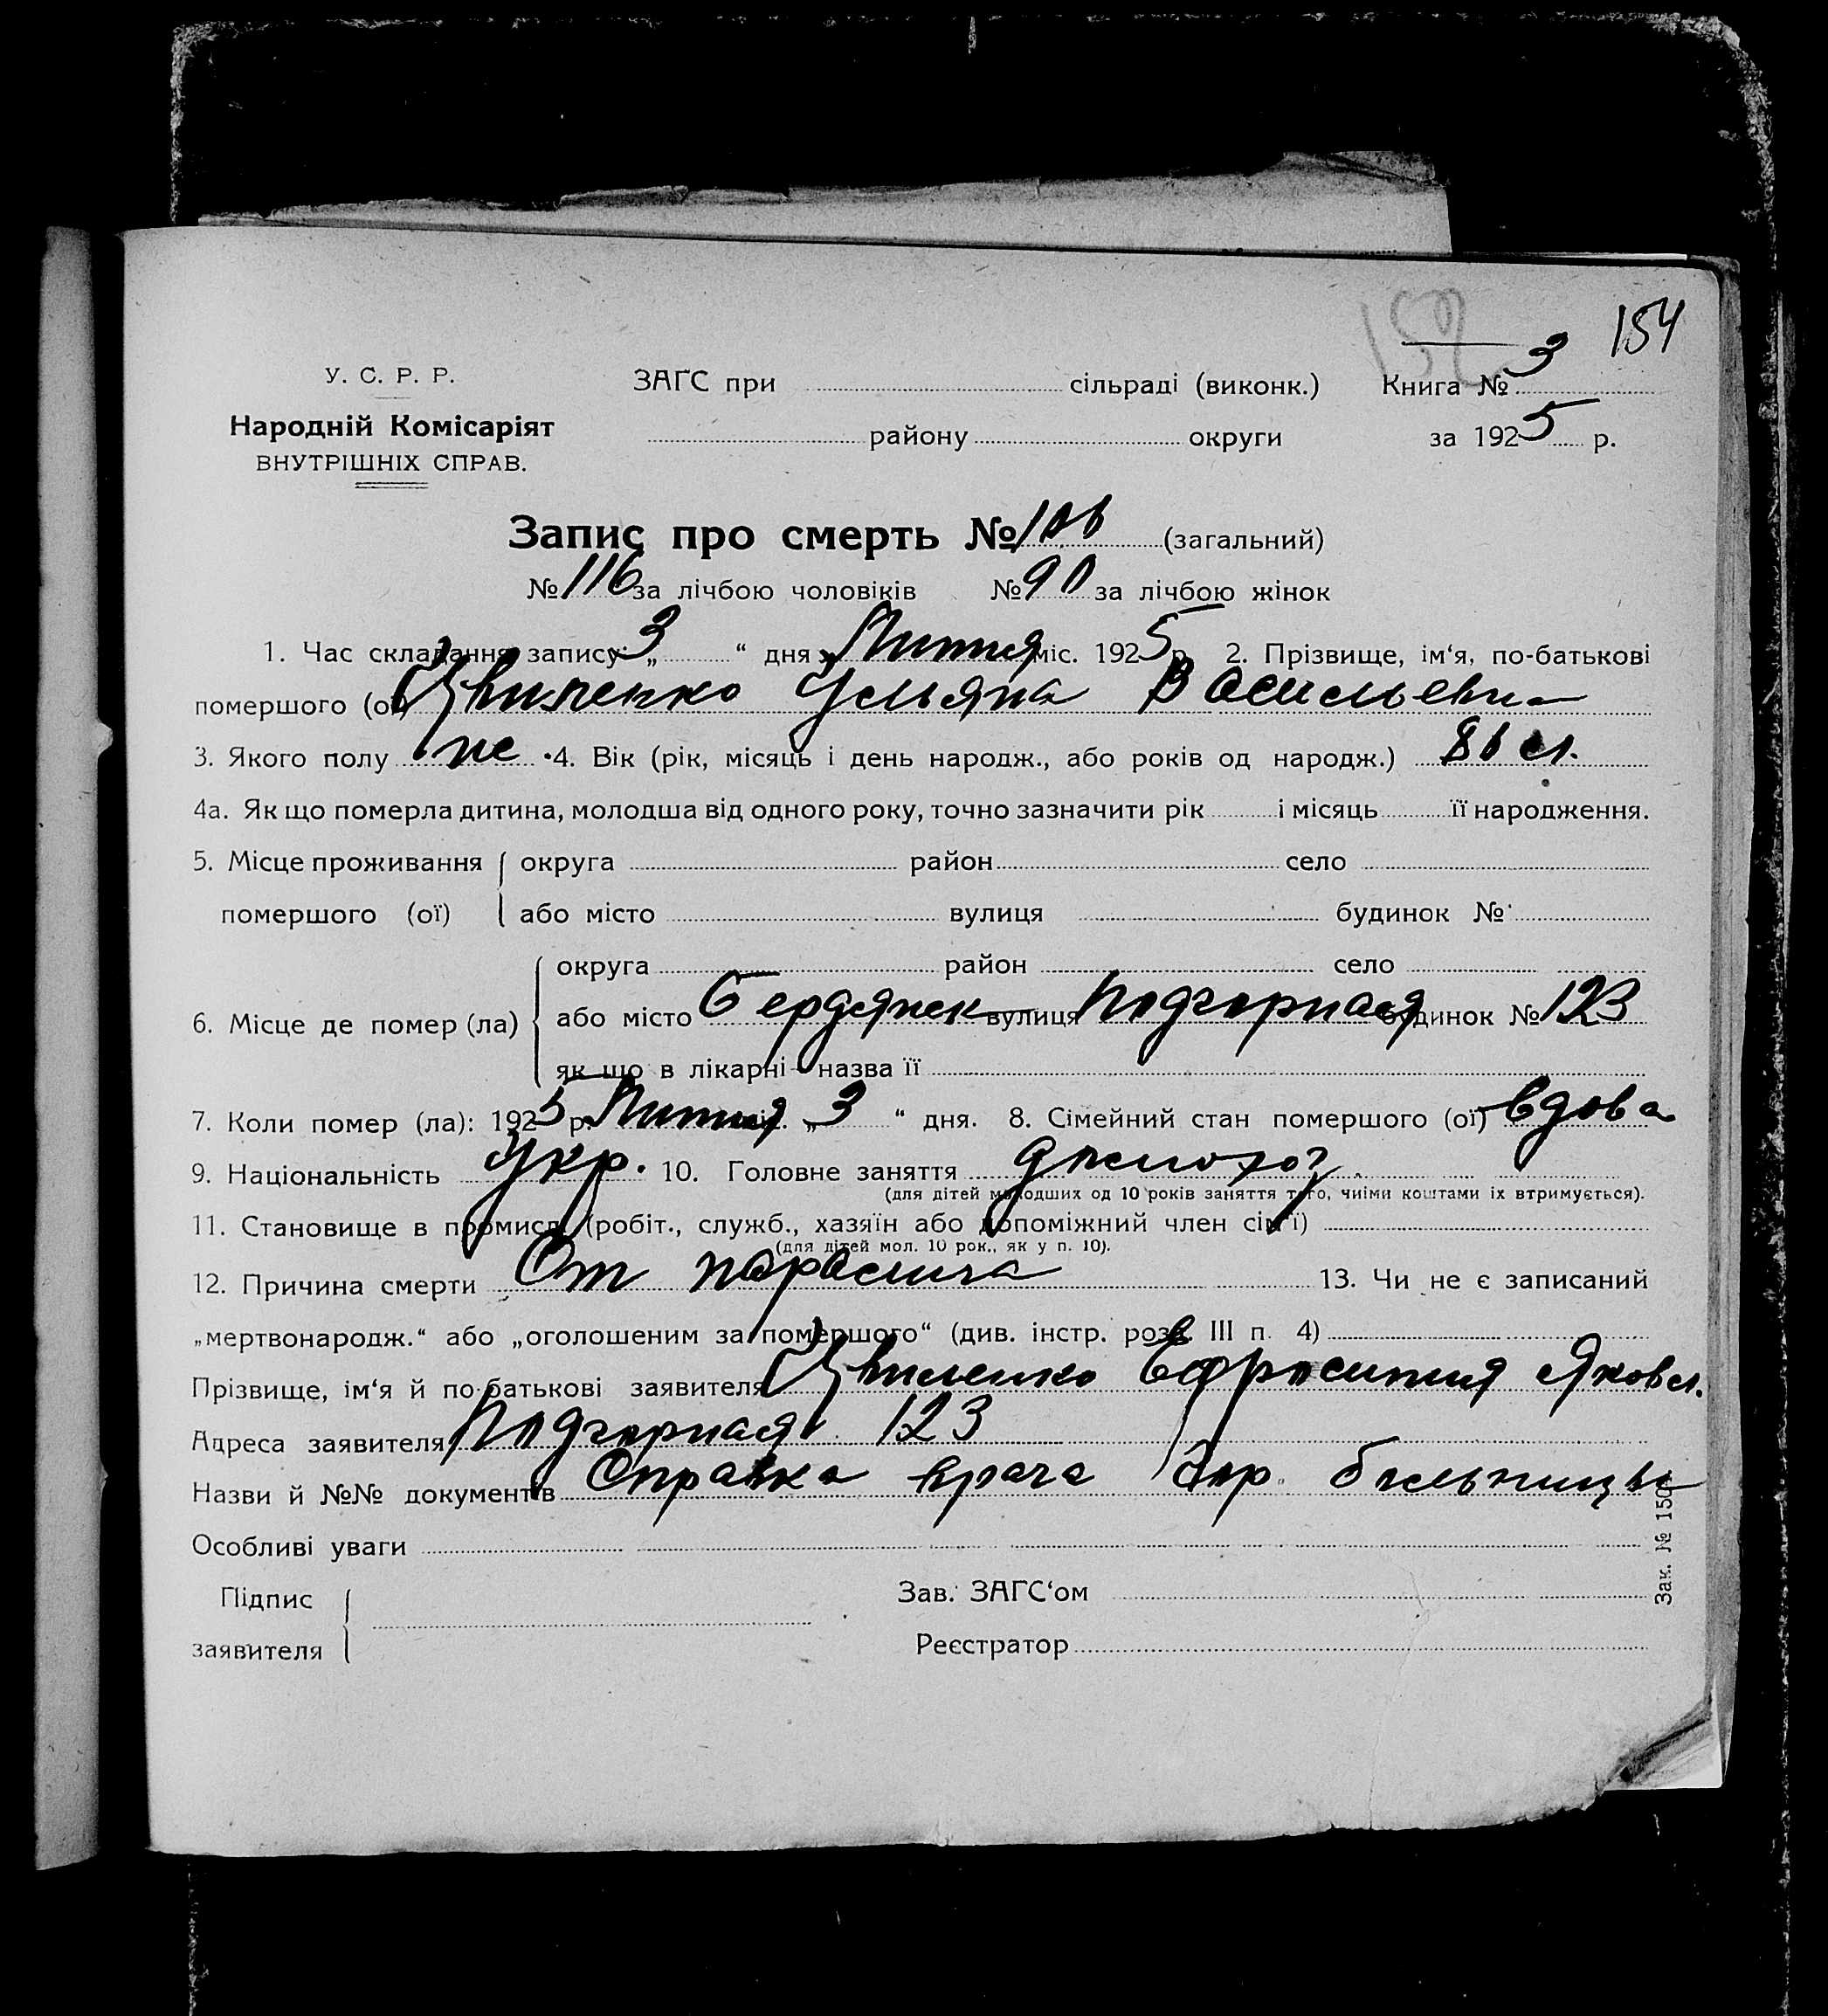 152 154
У. С. Р. Р. ЗАҐС при сільраді (виконк.) Книга № 3
Народній Комісаріят району округи за 1925 р.
ВНУТРІШНІХ СПРАВ.
Запис про смерть № (загальний)
№ 116 за лічбою чоловіків № 90 за лічбою жінок
1. Час складання запису: „ 3 “ дня Липня міс. 1925 р. 2. Прізвище, ім‘я, по-батькові
помершого (ої) Ульяна Васильевна
3. Якого полу 4. Вік (рік, місяць і день народж., або років од народж.)
4а. Як що померла дитина, молодша від одного року, точно зазначити рік і місяць її народження.
5. Місце проживання округа район село
помершого (ої) або місто вулиця будинок №
округа район село
6. Місце де помер (ла) або місто Бердянск вулиця Подгорная будинок № 123
як що в лікарні назва її
7. Коли помер (ла): 1925 р. Липня міс. „ 3 “ дня. 8. Сімейний стан помершого (ої) вдова
9. Національність Укр. 10. Головне заняття домохоз.
(для дітей молодших од 10 років заняття того, чиїми коштами їх втримується).
11. Становище в промисл. (робіт., служб., хазяїн або допоміжний член сім‘ї)
(для дітей мол. 10 рок., як у п. 10).
12. Причина смерти От паралича 13. Чи не є записаний
„мертвонародж.“ або „оголошеним за помершого“ (див. інстр. розд. III п. 4)
Прізвище, ім‘я й по-батькові заявителя Ефросиния Яковл.
Адреса заявителя Подгорная 123
Назви й №№ документів Справка врача больницы
Особливі уваги
Підпис Зав. ЗАГС‘ом
заявителя Реєстратор
Зак. № 150